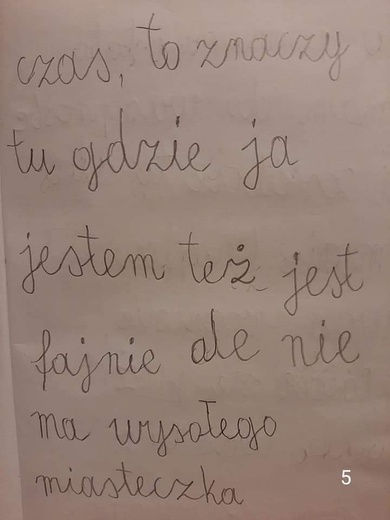 czas, to znaczy
tu gdzie ja
jestem też jest
fajnie ale nie
ma wysołego
miasteczka
5